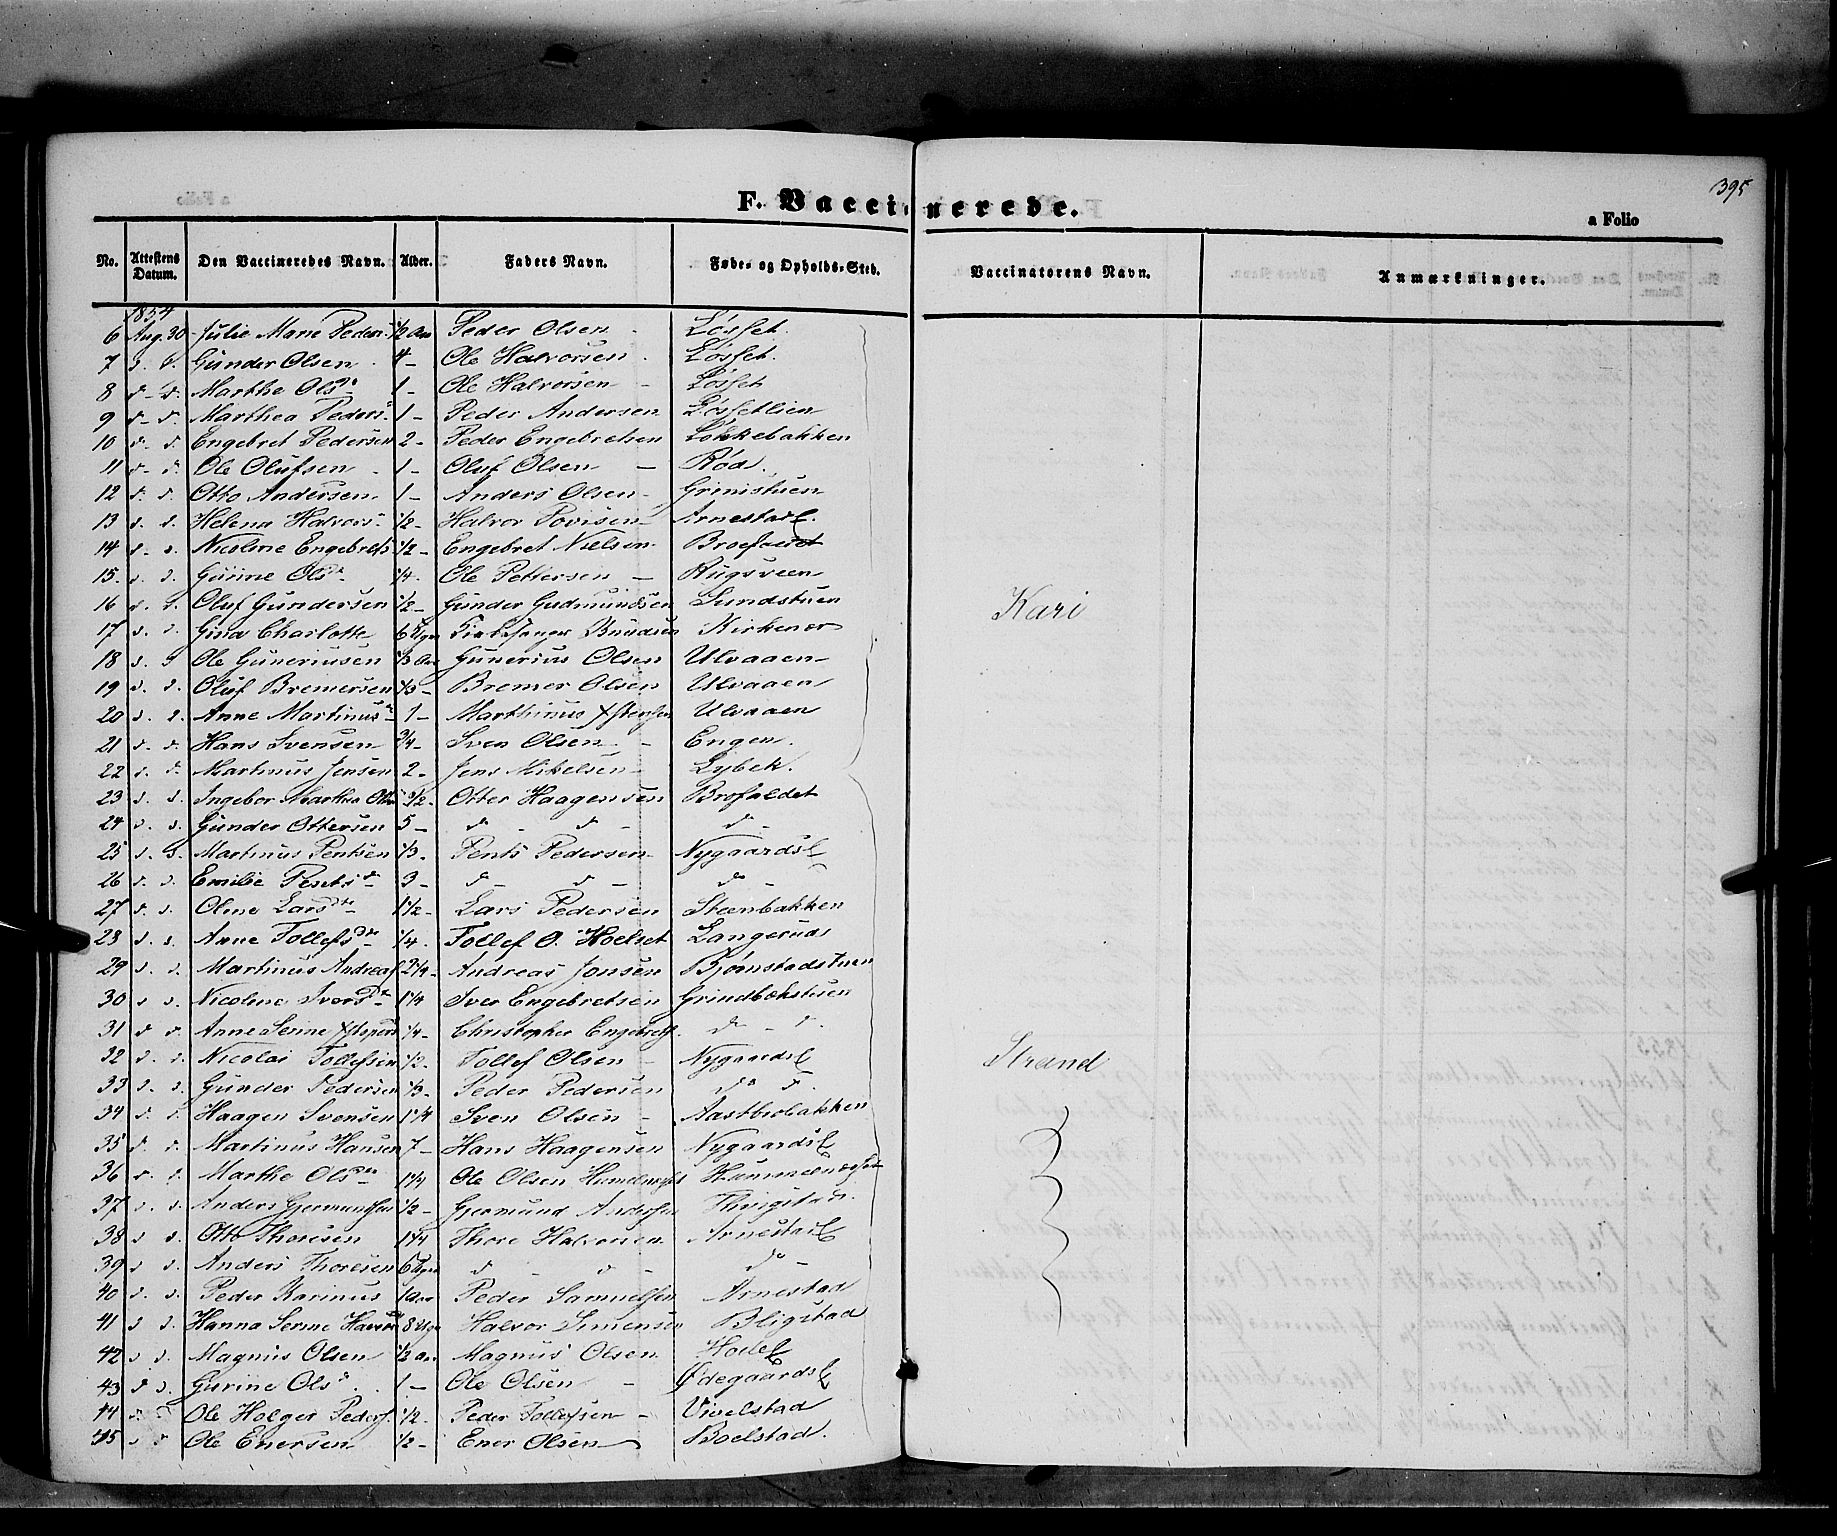 395
F. Vaccinerede.
a Folio
No. Attestens Datum. Den Vaccineredes Navn. Alder. Faders Navn. Føde- og Opholds-Sted. Vaccinatorens Navn. Anmærkninger.
1854
6 Aug. 30 Julie Marie Peders 1/2 Aar Peder Olsen - Løsset.
7 d. d. Gunder Olsen 4 - Ole Halvorsen Løsset.
8 d. d. Marthe Olsdr 1 - Ole Halvorsen - Løsset
9 d. d. Marthea Peders 1 - Peder Andersen Løssetlien
10 d. d. Engebret Pedersen 2 - Peder Engebretsen Løkkebakken
11 d. d. Ole Olufsen 1 - Oluf Olsen - Rød.
12 d. d. Otto Andersen 1 - Anders Olsen - Grinistuen
13 d. d. Helena Halvors 1/2 - Halvor Arnestad
14 d. d. Nicoline Engebrets 1/2 - Engebret Nielsen
15. d. d. Gurine Olsd 1/4. Ole Pettersen - Rugsveen
16 d. d. Oluf Gundersen 1/2 - Gunder Gudmundsen Sundstuen Kari
17 d. d. Gina Charlotte 6 Uger Knudsen Kirkenær
18 d. d. Ole Guneriusen 1/3 Aar Gunerius Olsen Ulvaaen
19 d. d. Oluf Bremersen 1/3 - Bremer Olsen Ulvaaen
20 d. d. Anne Martinusd 1 - Marthinus Ulvaaen
21 d. d. Hans Svensen 3/4 - Sven Olsen - Engen.
22 d. d. Martinus Jensen 2 - Jens Mikelsen Lybek.
23 d. d. Ingebor Marthea Otter Haagensen Brofaldet
24 d. d. Gunder Ottersen 5 - d - d - d -
25 d. d. Martinus Pentsen 1/3. Pents Pedersen Nygaards
26 d. d. Emilie Pentsd 3 - d - d - do
27 d. d. Oline Larsdtr 1 1/2 - Lars Pedersen Steenbakken
28 d. d. Anne Tollefsdr 1/4. Tollef O. Hoelset Langeruds
29 d. d. Martinus Andreas 2 1/4 - Andreas Jonsen Bjørnstadstuen
30 d. d. Nicoline Iversdr 1 1/4 Iver Engebretsen Grindbækstuen
31 d. d. Anne Serine 1/4 - Christopher Engebretsen d - d.
32 d. d. Nicolai Tollefsen 1/2. Tollef Olsen - Nygaards Strand
33 d. d. Gunder Pedersen 1/3 - Peder Pedersen do d.
34 d. d. Haagen Svensen 1 1/4 Sven Olsen - Aastbrobakken
35 d. d. Martinus Hansen 7 - Hans Haagensen Nygaards
36 d. d. Marthe Olsdtr 1 1/4 Ole Olsen
37 d. d. Anders Gjermundsen 1/2 - Gjermund Andersen
38 d. d. Otto Thoresen 1 1/4 Thore Halvorsen Arnestad
39 d. d. Anders Thoresen 6 Uger d - d - do -
40 d. d. Peder Karinus 1 Aar Peder Samuelsen Arnestad
41 d. d. Hanna Serine 8 Uger Halvor Simensen Bligstad
42 d. d. Magnus Olsen 1/2 Aar Magnus Olsen
43 d. d. Gurine Olsd 1 - Ole Olsen - Ødegaards
44 d. d. Ole Holger Peders 1/2. Peder Tollefsen - Vivelstad
45 d. d. Ole Enersen 1/2 - Ener Olsen Boelstad.